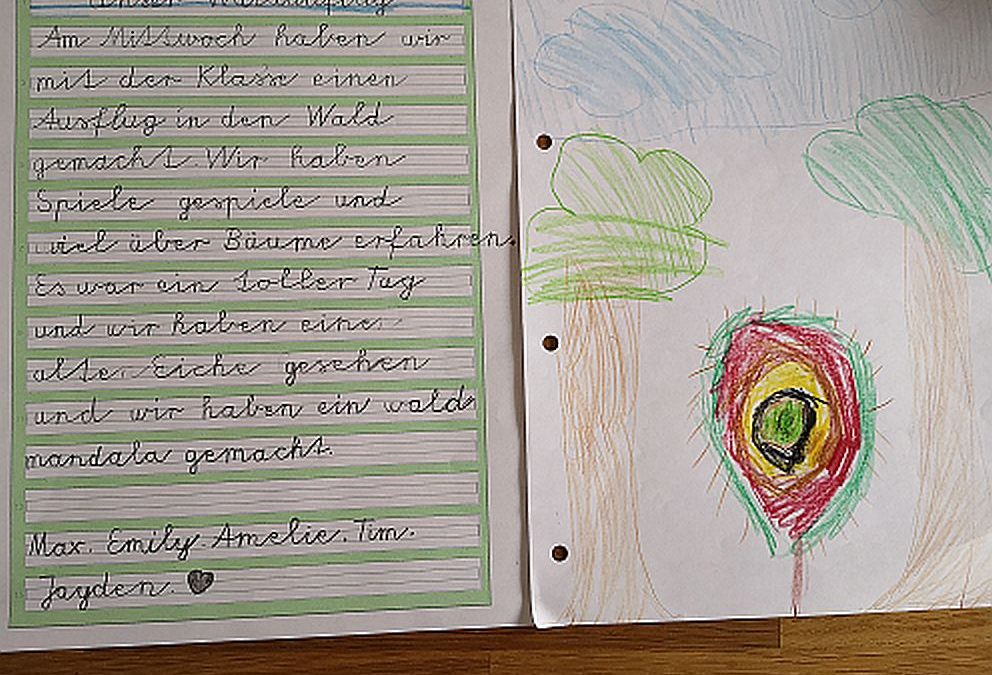 Unser Waldausflug
Am Mittwoch haben wir
mit der Klasse einen
Ausflug in den Wald
gemacht. Wir haben
Spiele gespiele und
viel über Bäume erfahren.
Es war ein toller Tag
und wir haben eine
alte Eiche gesehen
und wir haben ein wald
mandala gemacht.
Max. Emily. Amelie. Tim.
Jayden.